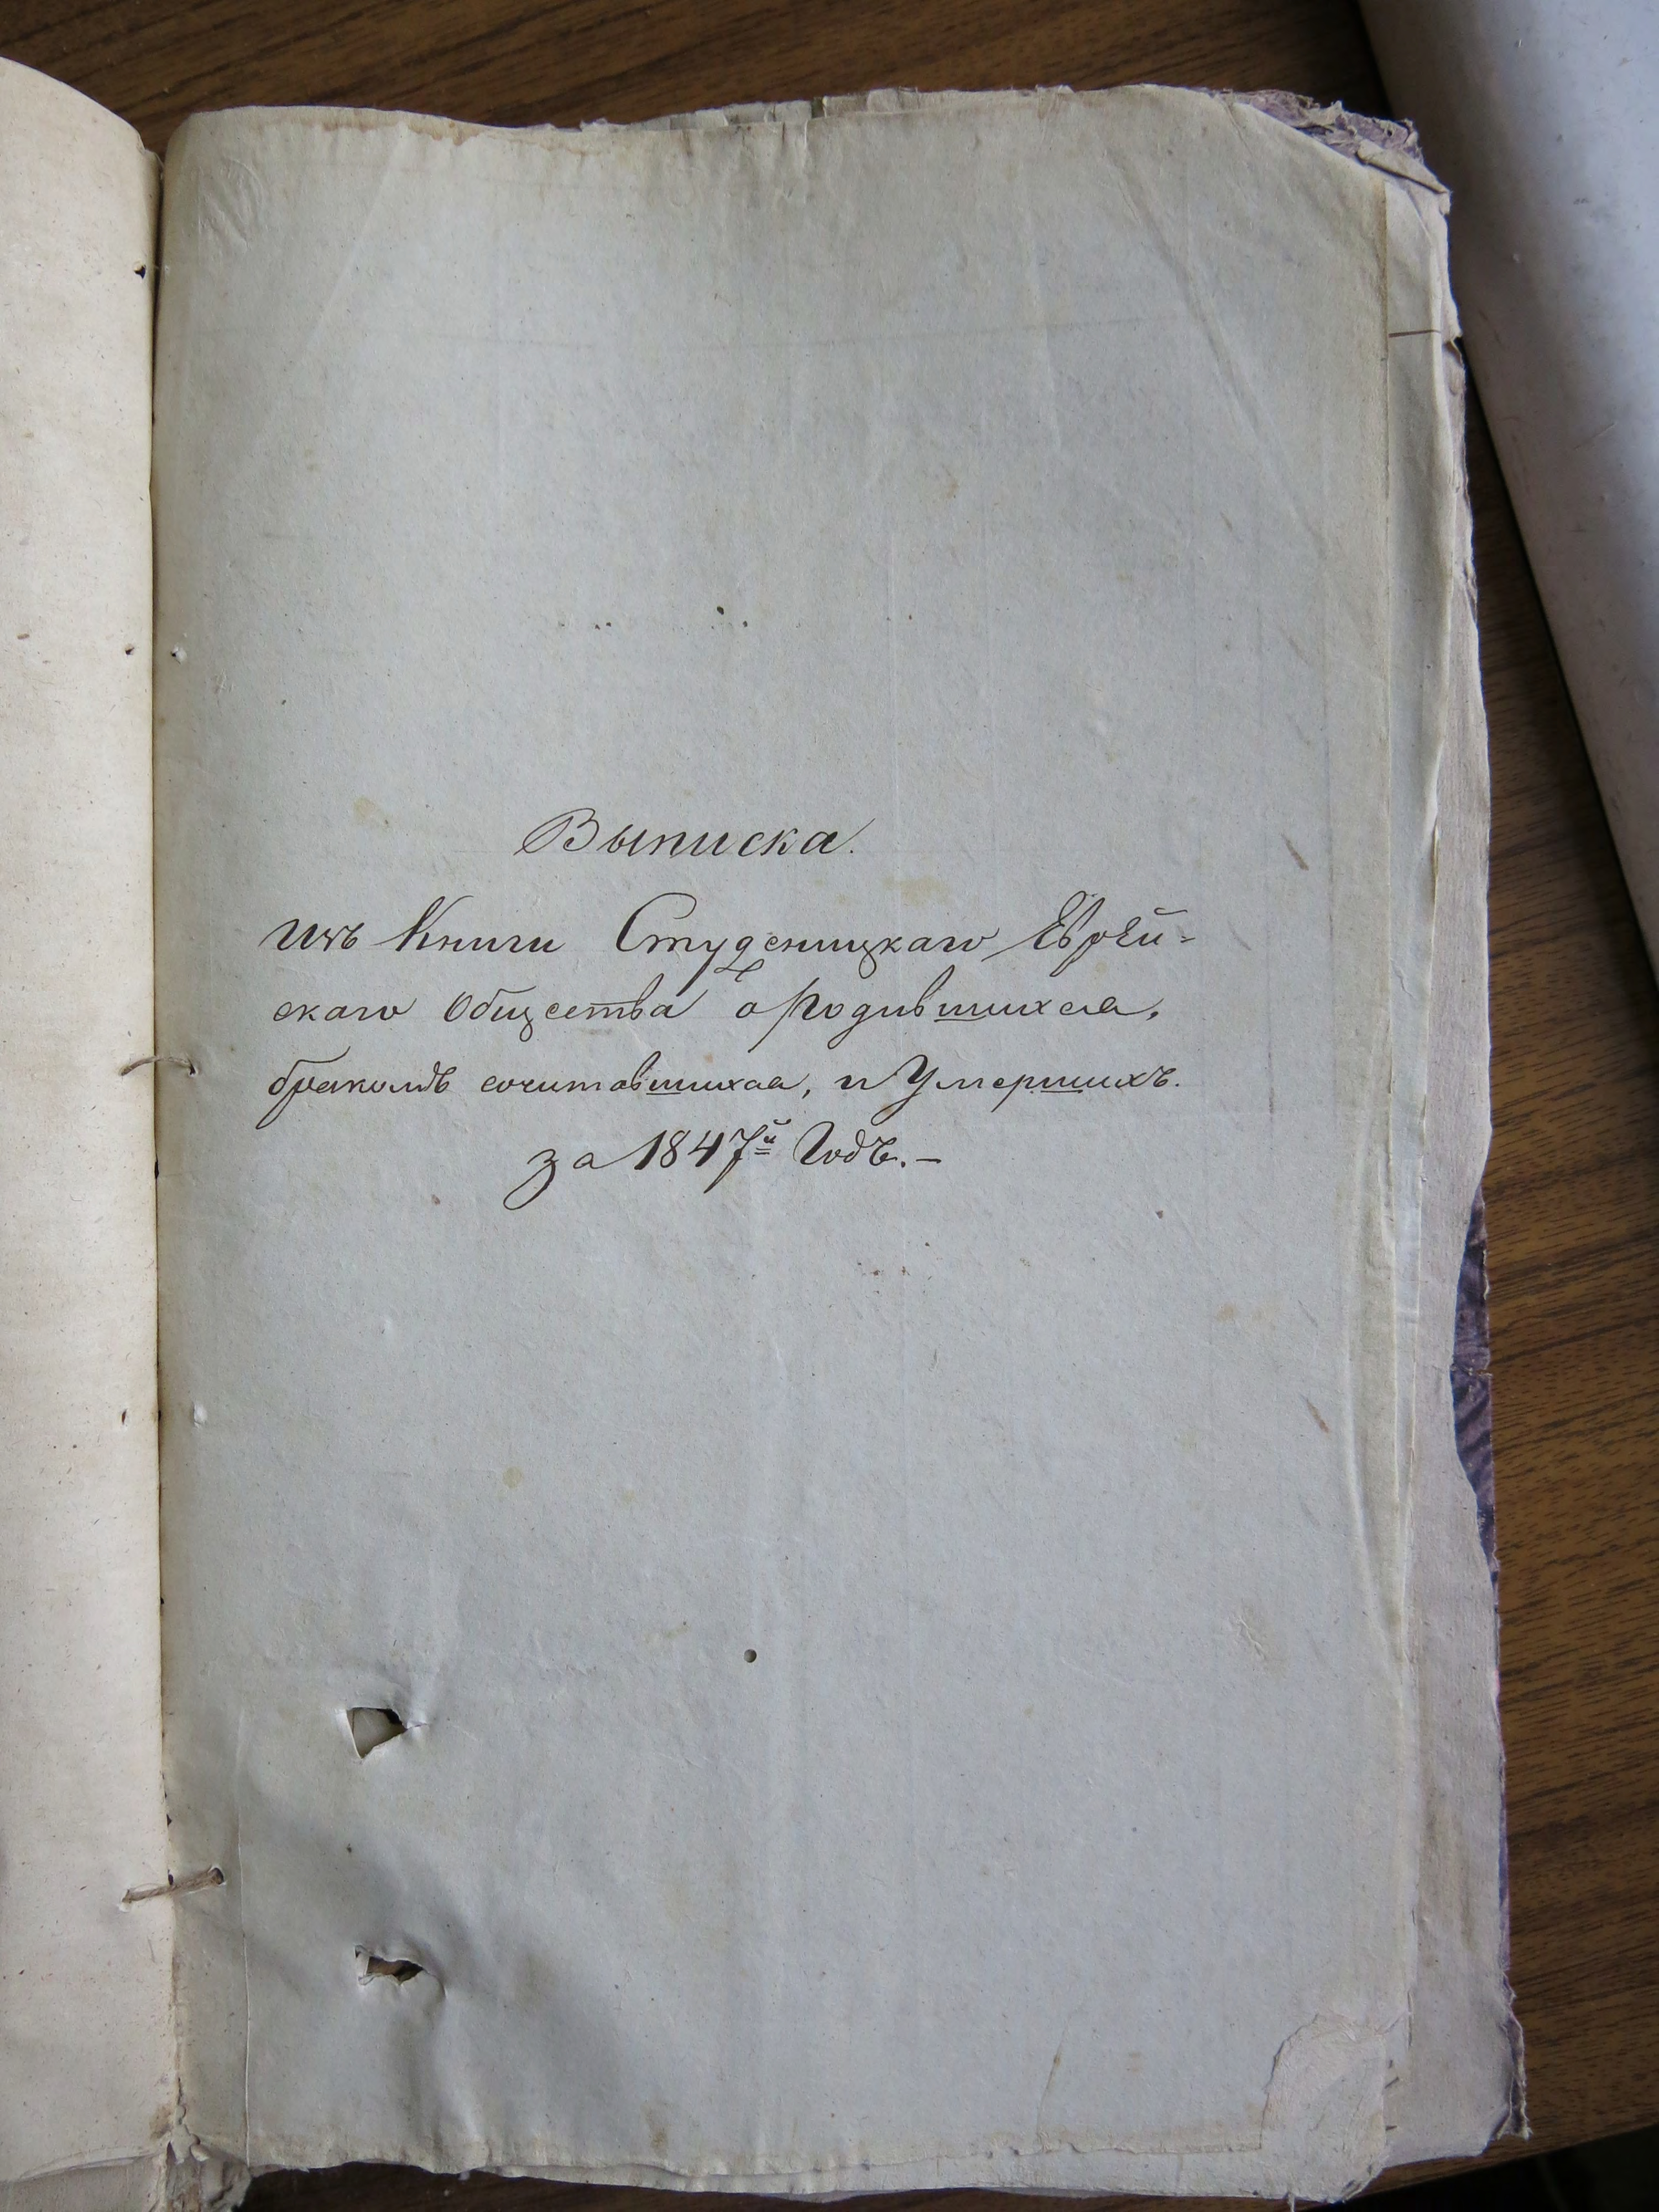 Выписка.
изъ Книги Студеницкаго Еврей-
скаго Общества о родившихся,
бракомъ сочитавшихся, и Умершихъ.
за 1847й Годъ.-